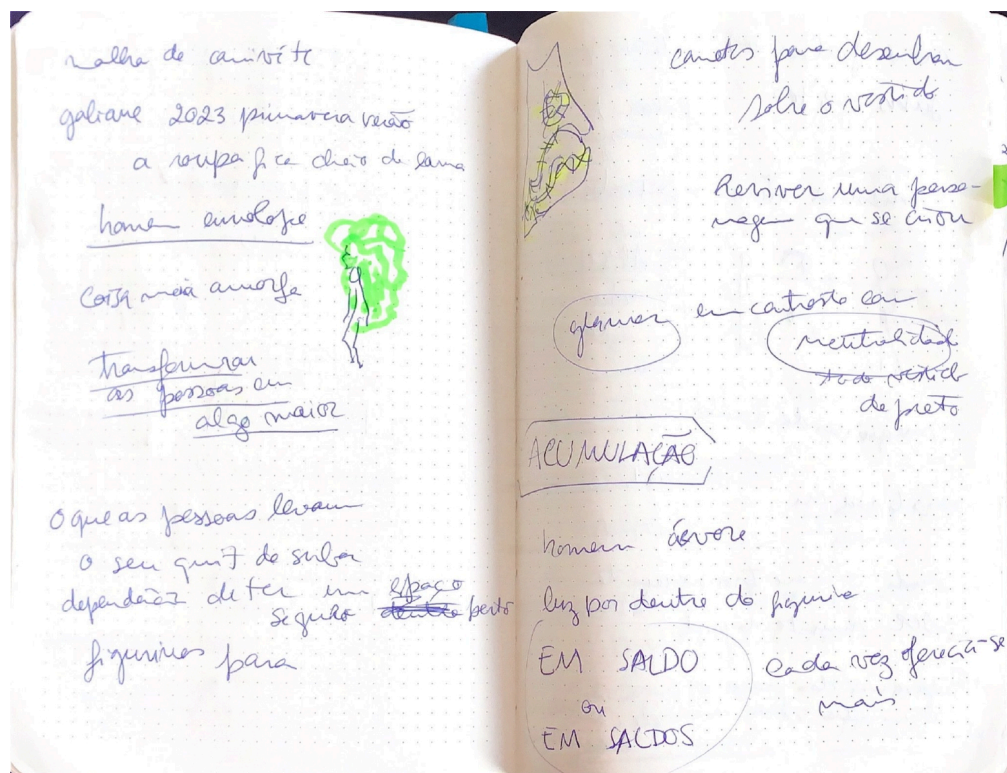 malha de canivete
galiane 2023 primavera verão
a roupa fica cheio de lama
homem envelope
Coisa meia amorfa
transformar
as pessoas em
algo maior
O que as pessoas levam
o seu de
de ter um espaço
seguro dentro perto
figurinos para
canetas para desenhar
sobre o vestido
Reviver uma perso-
nagem que se criou
glamour em contraste com
neutralidade
todo vestido
de preto
ACUMULAÇÃO
homem árvore
luz por dentro do figurino
EM SALDO
ou
EM SALDOS
cada vez oferecia-se
mais